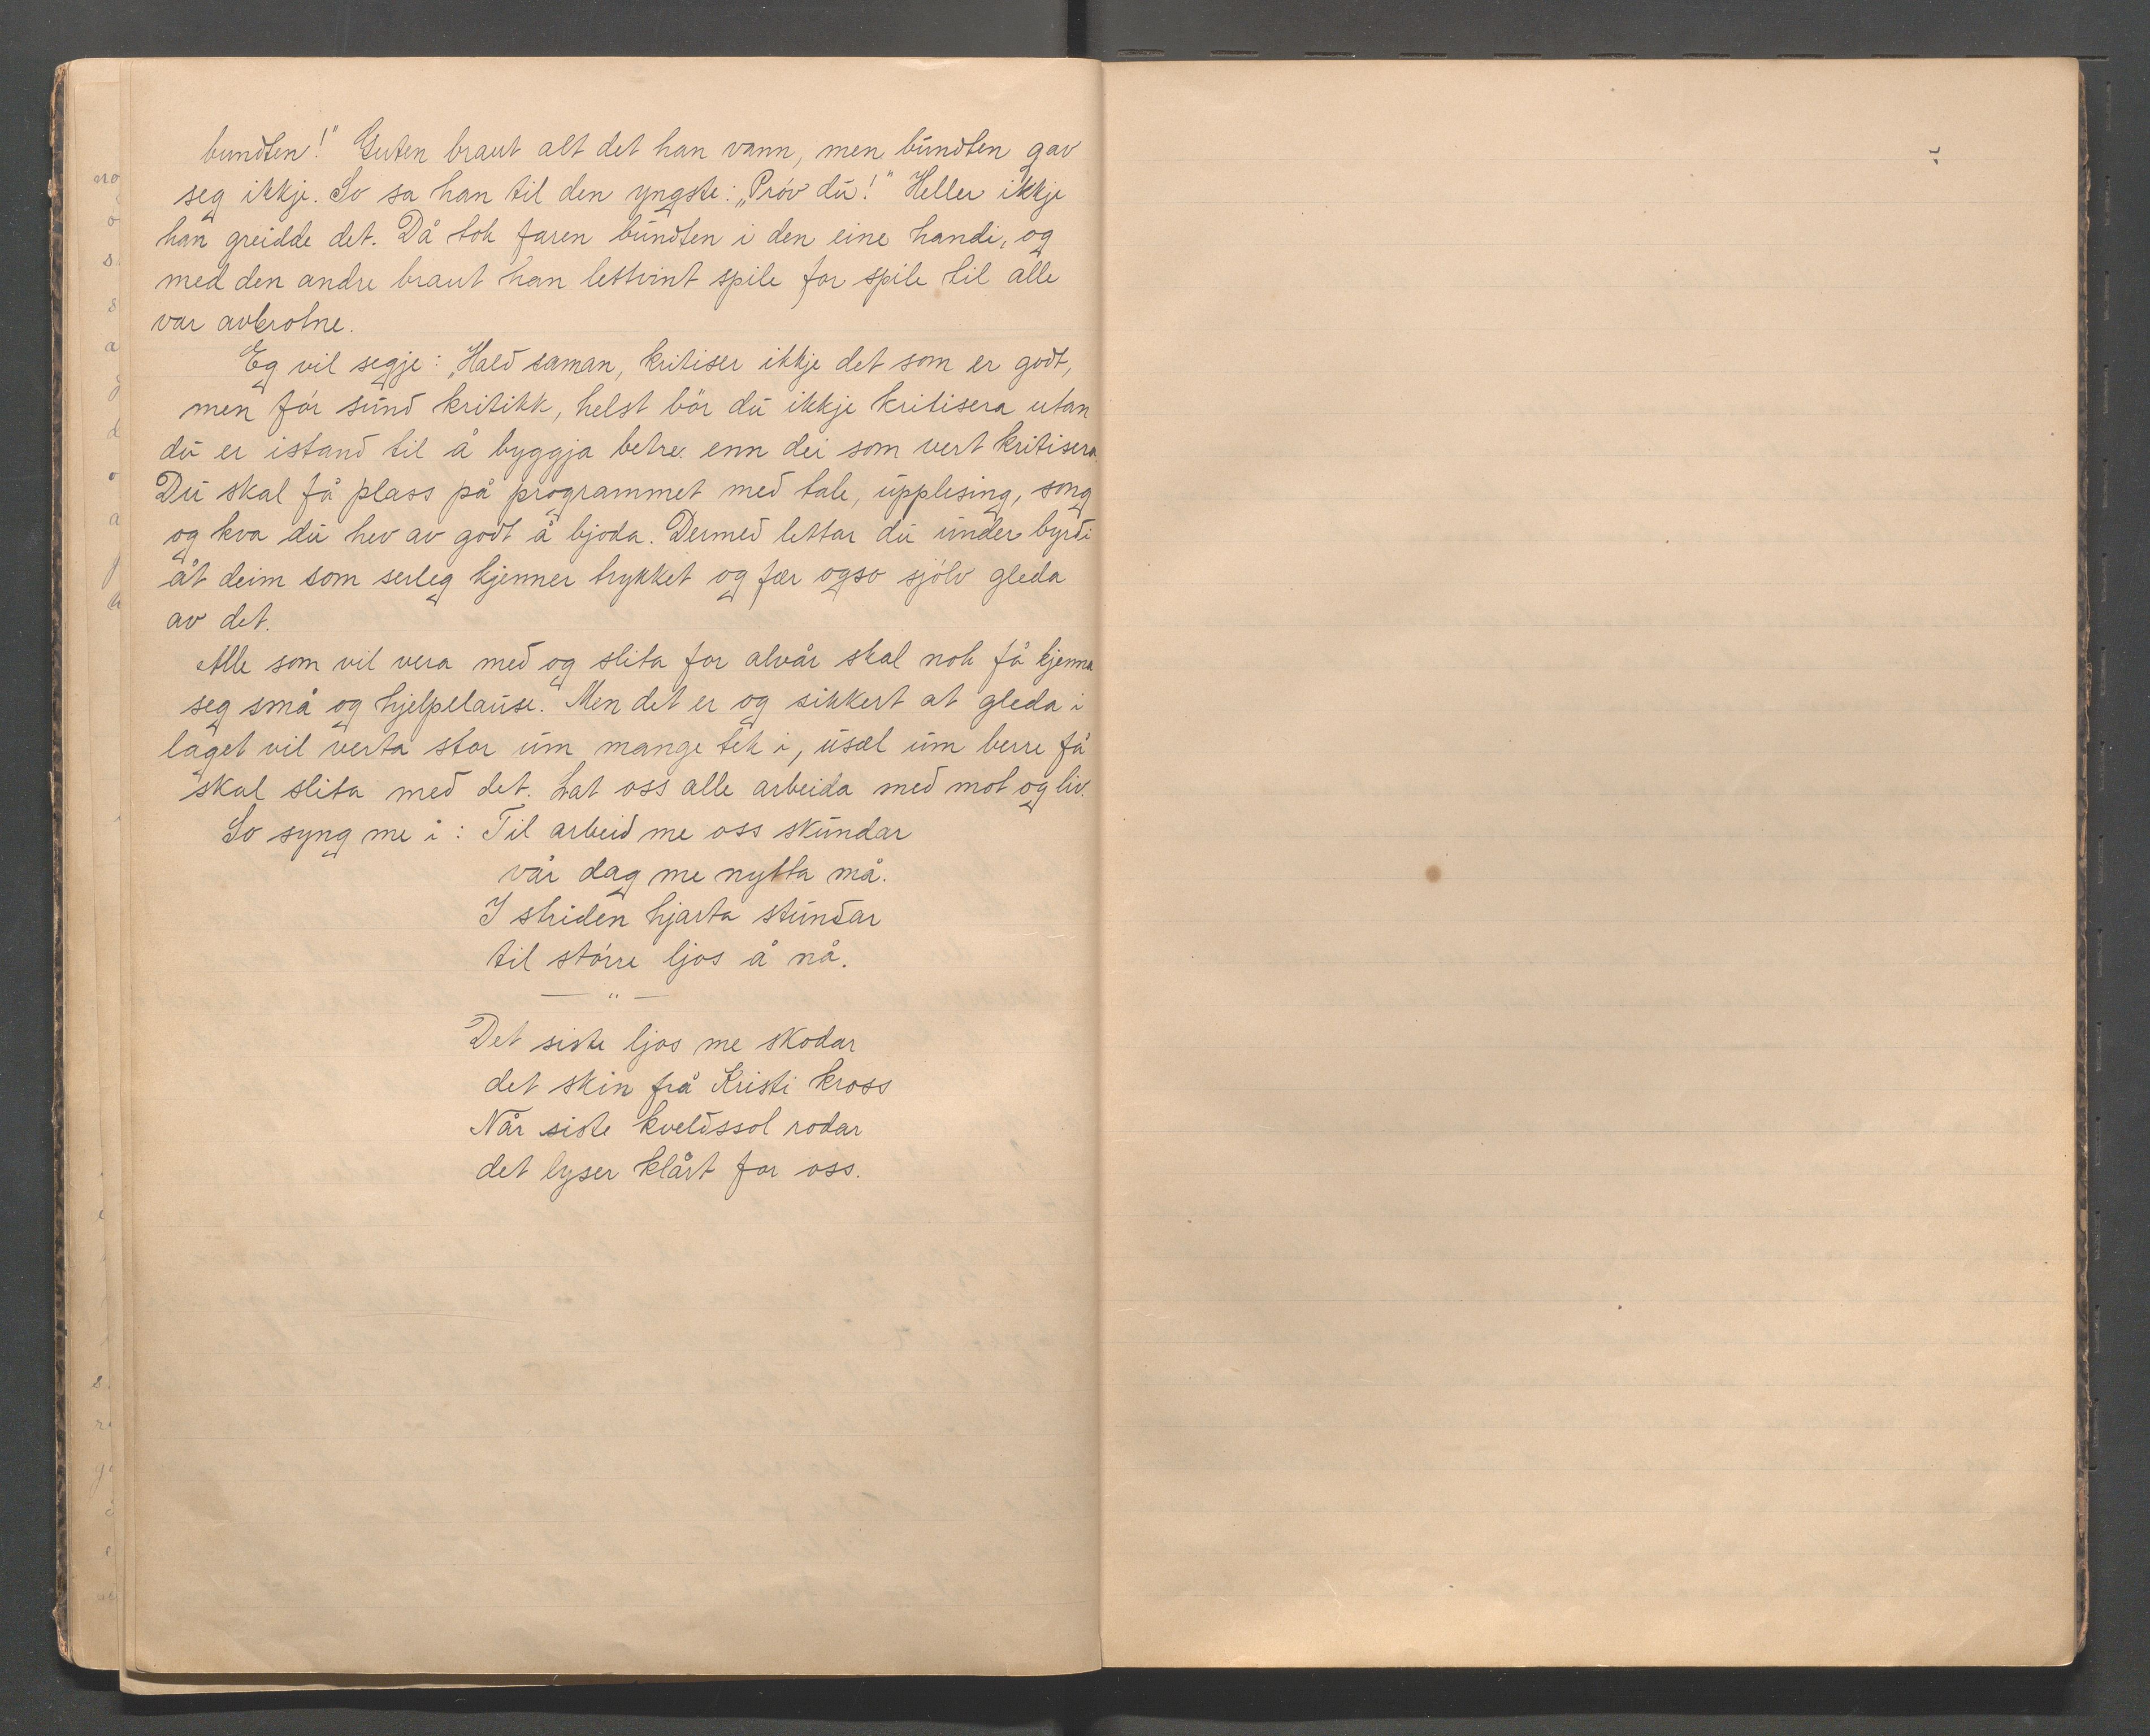 bundten!" Guten braut alt det han vann, men bundten gav
seg ikkje. So sa han til den yngste: „Prøv du!" Heller ikkje
han greidde det. Då tok faren bundten i den eine handi, og
med den andre braut han lettvint spile for spile til alle
var avbrotne.
Eg vil segje: „Hald saman, kritiser ikkje det som er godt,
men før sund kritikk, helst bör du ikkje kritisera utan
du er istand til å byggja betre enn dei som vert kritisera.
Du skal få plass på programmet med tale, upplesing, song
og kva du hev av godt å bjoda. Dermed lettar du under byrdi
åt deim som serleg kjenner trykket og fær ogso sjølv gleda
av det.
Alle som vil vera med og slita for alvår skal nok få kjenna
seg små og hjelpelause." Men det er og sikkert at gleda i
laget vil verta stor um mange tek i, usæl um berre få
skal slita med det. Lat oss alle arbeida med mot og liv.
So syng me i: Til arbeid me oss skundar
vår dag me nytta må.
I striden hjarta stundar
til større ljos å nå.
— " —
Det siste ljos me skodar
det skin frå Kristi kross
Når siste kveldssol rodar
det lyser klårt for oss.